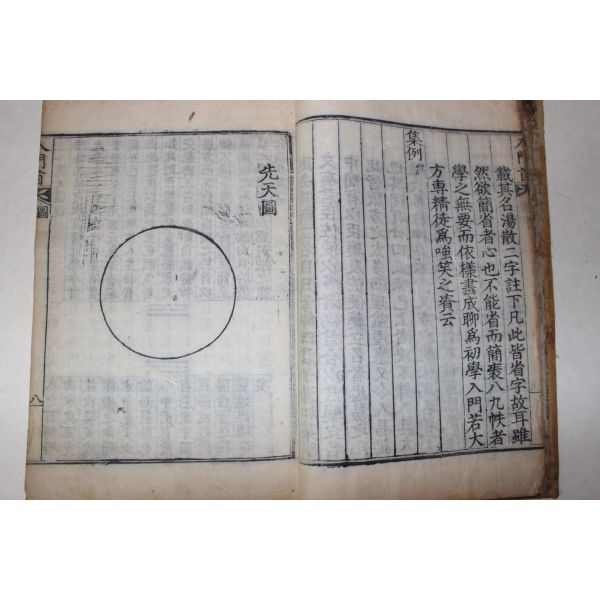 載其名湯散二字註下凡此皆省字故耳雖
然欲簡省者心也不能省而簡褁八九帙者
學之無要而依樣畫成聊爲初學入門若大
方專精徒爲嗤笑之資云
集例終
先天圖
入門首
圖
八